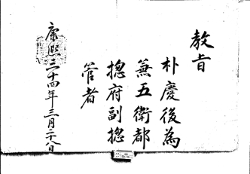 教旨
朴慶後為
兼五衛都
摠府副摠
管者
康熙二十四年三月二十八日